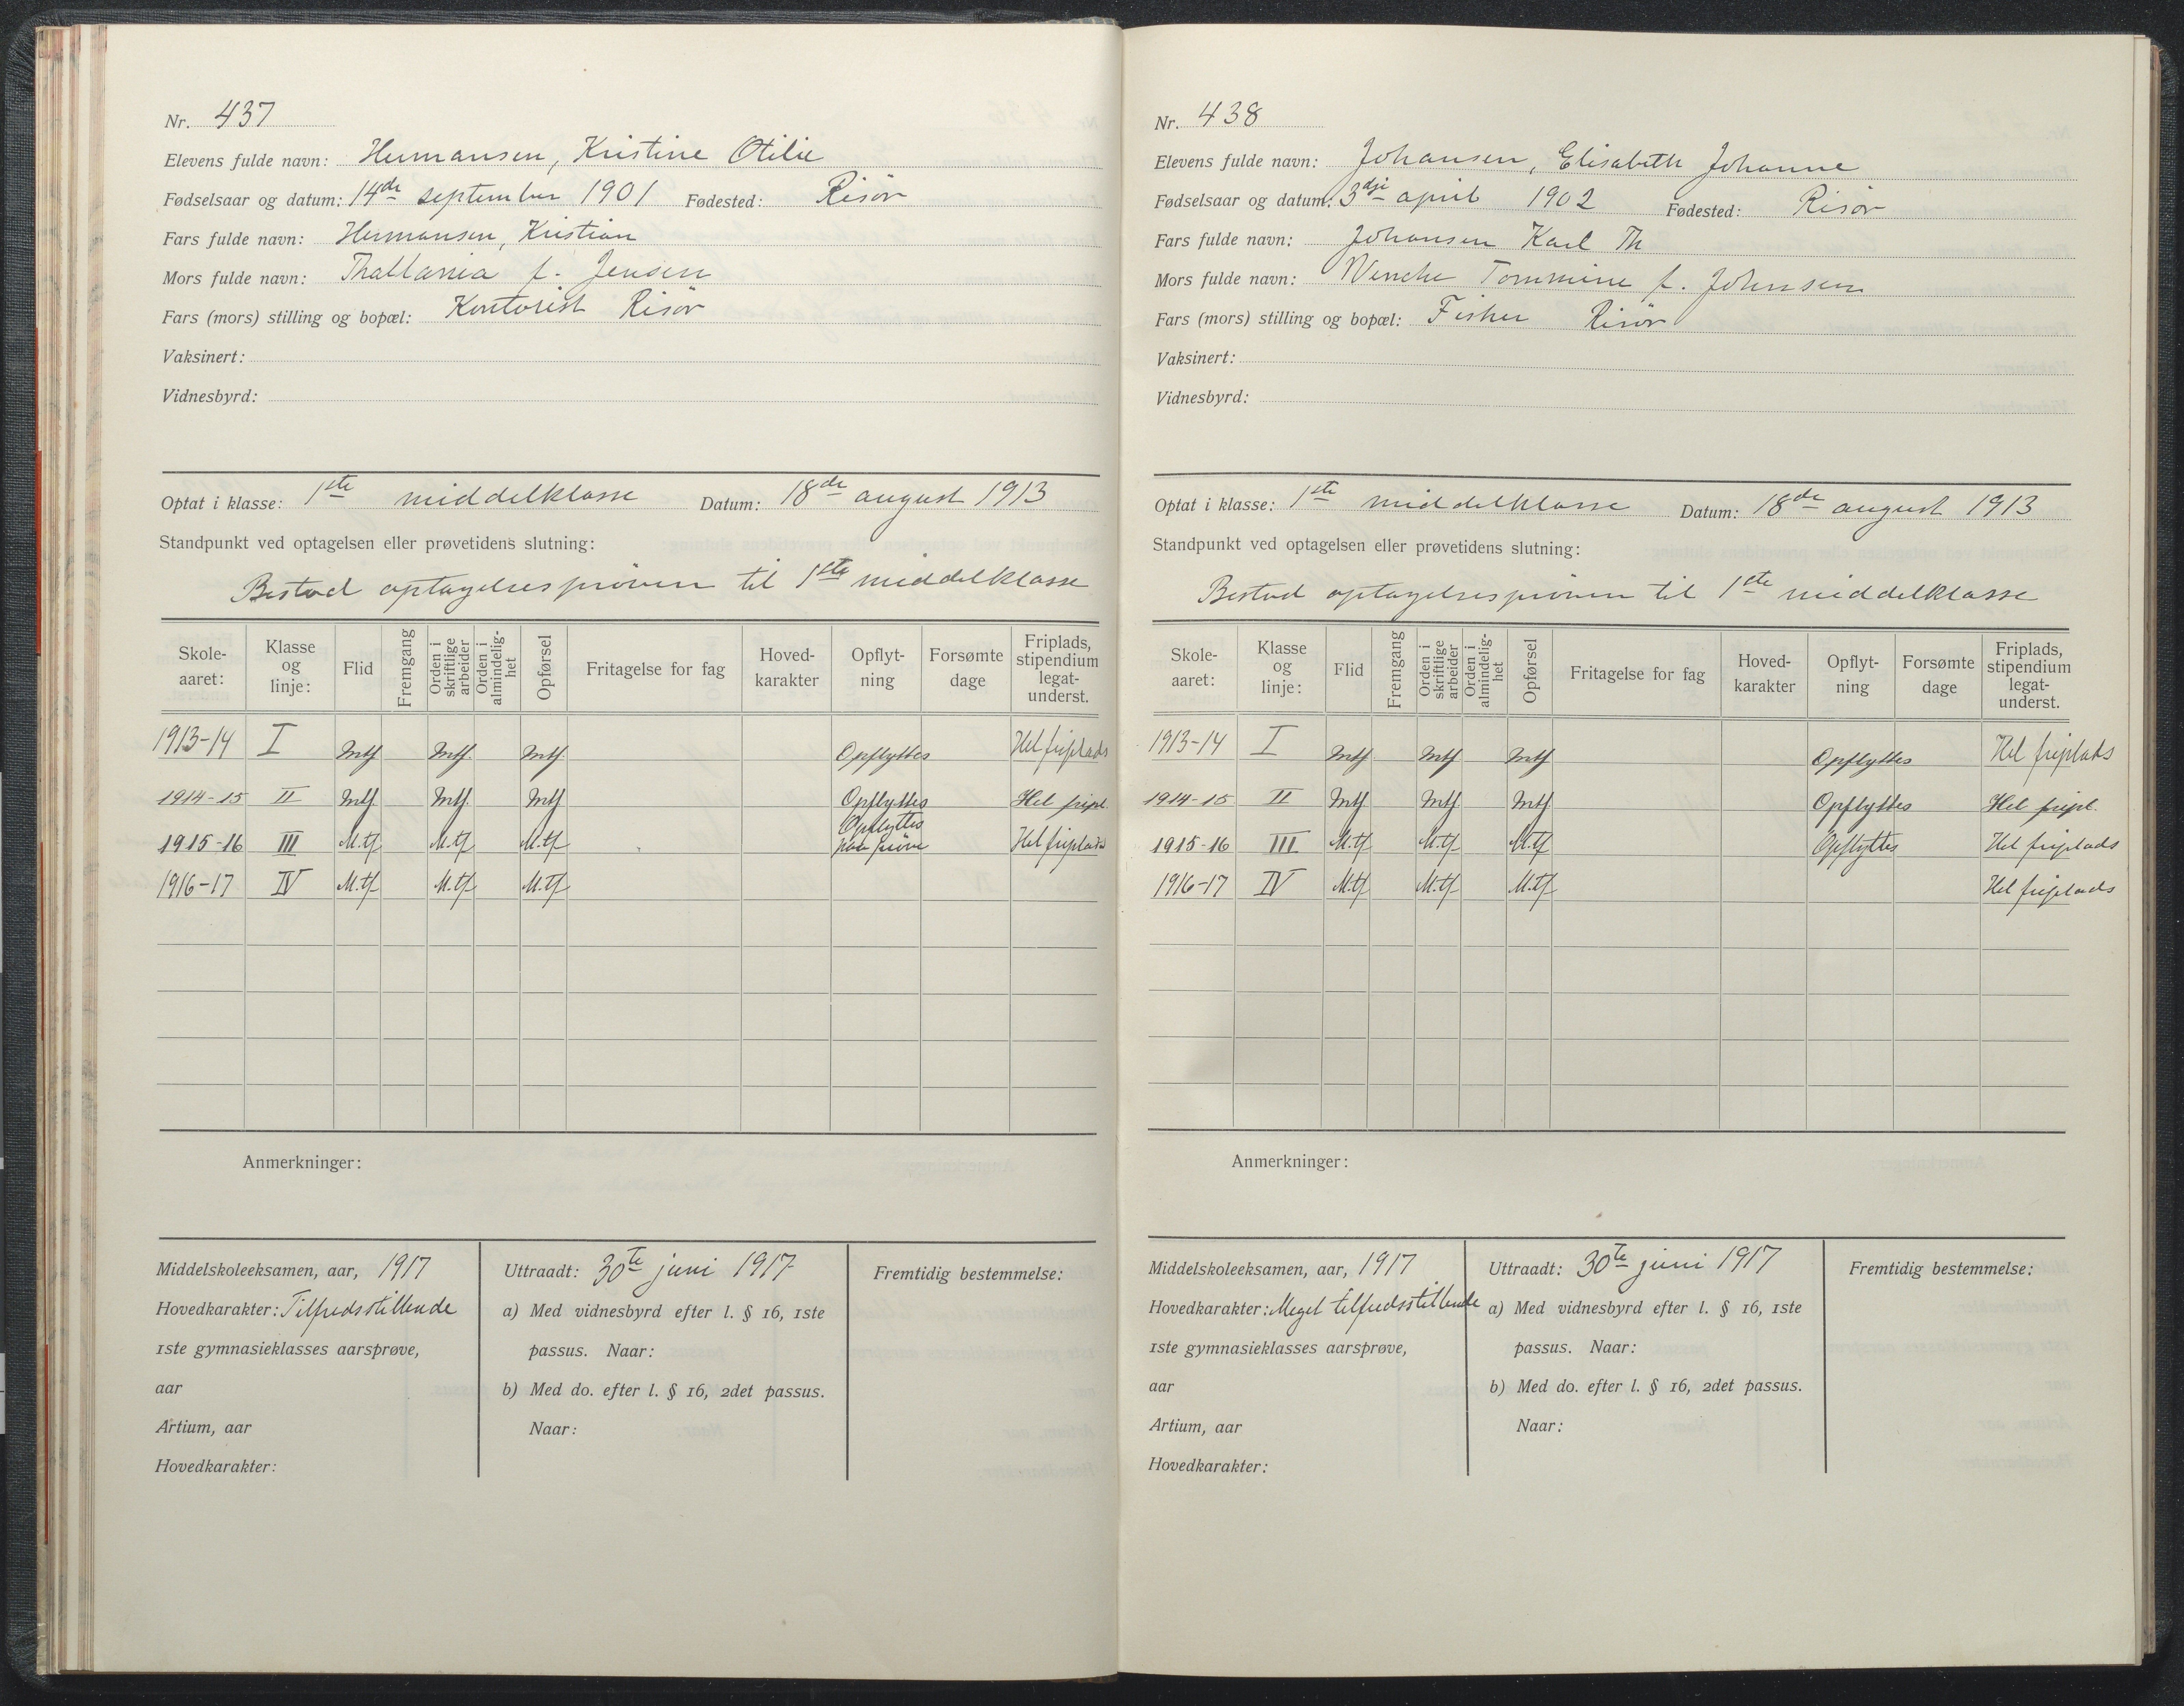 Nr. 437
Elevens fulde navn: Hermansen, Kristine Otilie
Fødselsaar og datum: 14de september 1901 Fødested: Risör
Fars fulde navn: Hermansen, Kristian
Mors fulde navn: f. Jensen
Fars (mors) stilling og bopæl: Kontorist Risör
Vaksinert:
Vidnesbyrd:
Optat i klasse: 1ste middelklasse Datum: 18de august 1913
Standpunkt ved optagelsen eller prøvetidens slutning:
Bestod optagelsesprøven til 1ste middelklasse
Skole-aaret: Klasse og linje: Flid Fremgang Orden i skriftlige arbeider Orden i almindelig-het Opførsel Fritagelse for fag Hoved-karakter Opflyt-ning Forsømte dage Friplads, stipendium legat-underst.
1913-14 I Mtf Mtf. Mtf. Opflyttes Hel friplads
1914-15 II Mtf Mtf. Mtf Opflyttes Hel fripl.
1915-16 III M.tf M.tf M.tf Opflyttes paa prøve Hel friplads
1916-17 IV M.tf M.tf M.tf
Anmerkninger:
Middelskoleeksamen, aar, 1917 Uttraadt: 30te juni 1917 Fremtidig bestemmelse:
Hovedkarakter: Tilfredsstillende a) Med vidnesbyrd efter l. § 16, 1ste
1ste gymnasieklasses aarsprøve, passus. Naar:
aar b) Med do. efter l. § 16, 2det passus.
Artium, aar Naar:
Hovedkarakter:
Nr. 438
Elevens fulde navn: Johansen, Elisabeth Johanne
Fødselsaar og datum: 3dje april 1902 Fødested: Risör
Fars fulde navn: Johansen Karl Th
Mors fulde navn: Wenche Tommine f. Johnsen
Fars (mors) stilling og bopæl: Fisker Risör
Vaksinert:
Vidnesbyrd:
Optat i klasse: 1ste middelklasse Datum: 18de august 1913
Standpunkt ved optagelsen eller prøvetidens slutning:
Bestod optagelsesprøven til 1ste middelklasse
Skole-aaret: Klasse og linje: Flid Fremgang Orden i skriftlige arbeider Orden i almindelig-het Opførsel Fritagelse for fag Hoved-karakter Opflyt-ning Forsømte dage Friplads, stipendium legat-underst.
1913-14 I Mtf Mtf Mtf Opflyttes Hel friplads
1914-15 II Mtf Mtf Mtf Opflyttes Hel fripl.
1915-16 III M.tf M.tf M.tf Opflyttes Hel friplads
1916-17 IV M.tf M.tf M.tf Hel friplads
Anmerkninger:
Middelskoleeksamen, aar, 1917 Uttraadt: 30te juni 1917 Fremtidig bestemmelse:
Hovedkarakter: Meget tilfredsstillende a) Med vidnesbyrd efter l. § 16, 1ste
1ste gymnasieklasses aarsprøve, passus. Naar:
aar b) Med do. efter l. § 16, 2det passus.
Artium, aar Naar:
Hovedkarakter: